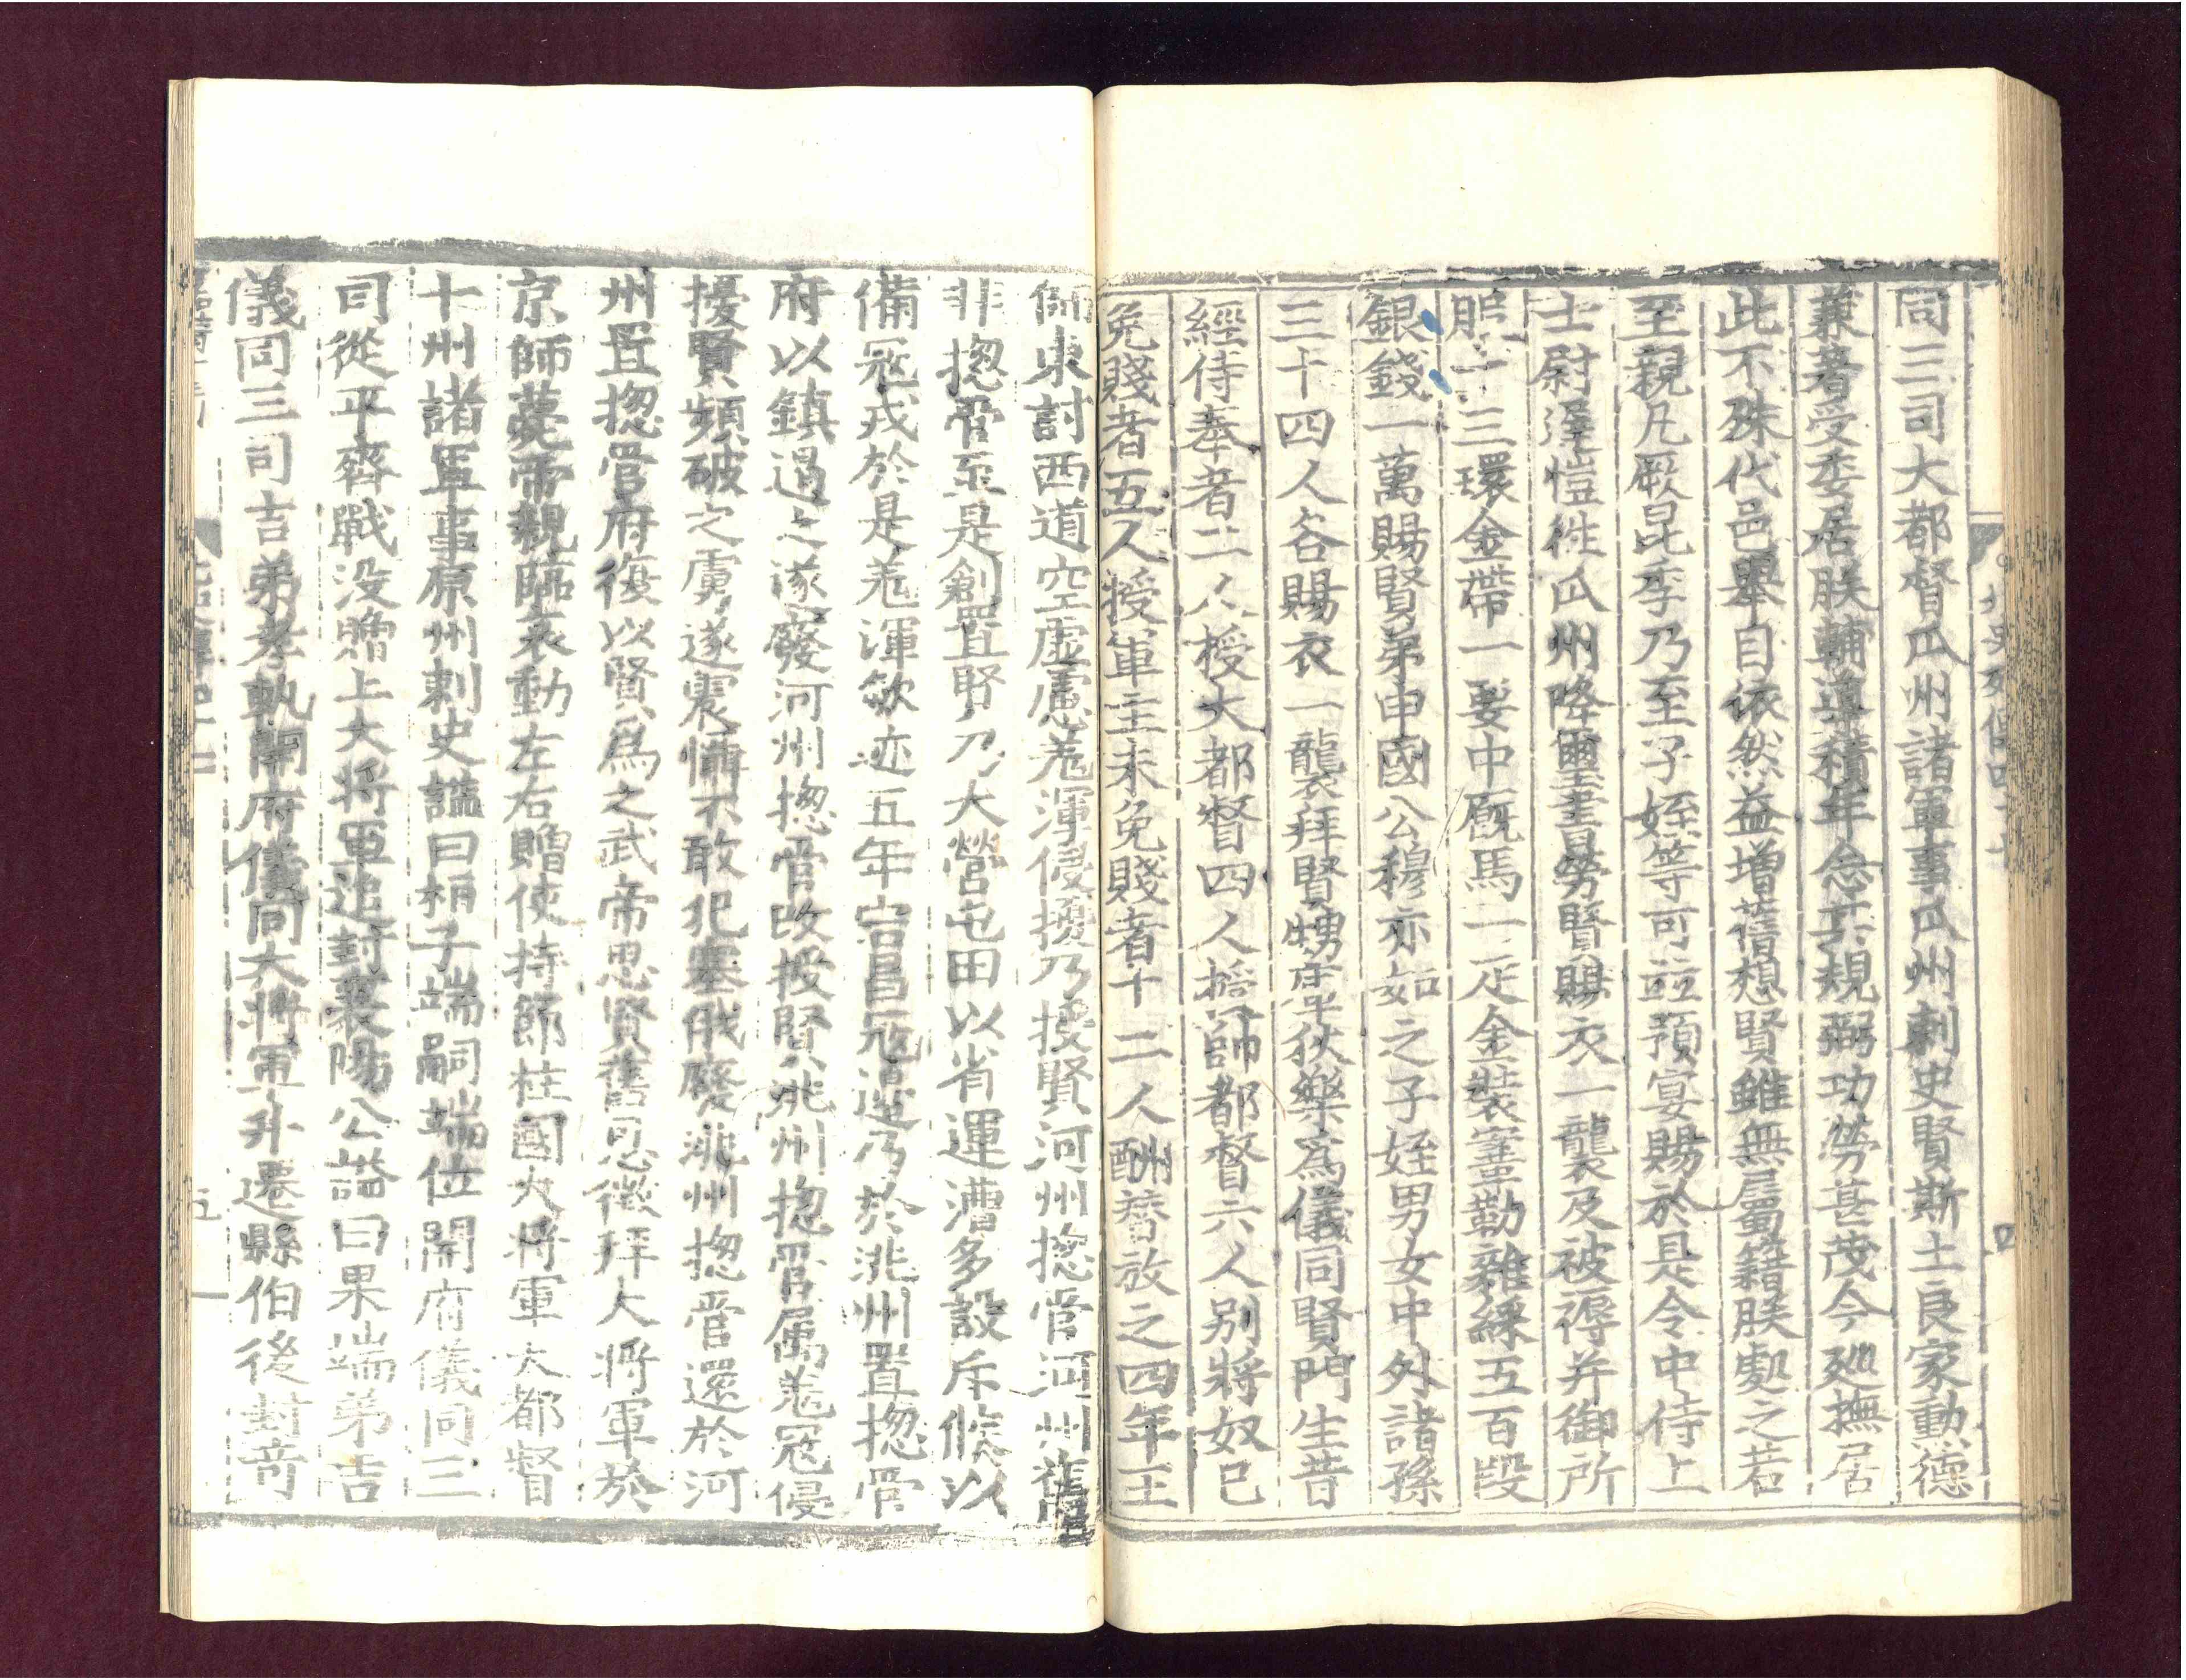 北史列傳四十七
四
同三司大都督瓜州諸軍事瓜州刺史賢斯土良家勳德
兼著受委居朕輔導積年念其規弼功勞甚茂今廵撫居
此不殊代邑舉目依然益增舊想賢雖無屬籍朕處之若
至親凡厥昆季乃至子姪等可並預宴賜於是令中侍上
士尉遲愷徃瓜州降璽書勞賢賜衣一襲及被褥并御所
服十三環金帶一要中廐馬一疋金裝鞌勒雜綵五百段
銀錢一萬賜賢弟申國公穆亦如之子姪男女中外諸孫
三十四人各賜衣一襲拜賢甥厙狄樂爲儀同賢門生昔
經侍奉者二人授大都督四人授帥都督六人別將奴已
免賤者五人授軍主未免賤者十二人酬替放之四年王
師東討西道空虛慮羗渾侵擾乃授賢河州揔管河州舊
非揔管至是創置賢乃大營屯田以省運漕多設斥候以
備冦戎於是羗渾斂迹五年宕昌冦邊乃於洮州置揔管
府以鎮遏之遂廢河州揔管改授賢洮州揔管屬羗冦侵
擾賢頻破之虜遂震懾不敢犯塞俄廢洮州揔管還於河
州置揔管府復以賢爲之武帝思賢舊恩徵拜大將軍於
京師薨帝親臨哀動左右贈使持節柱國大將軍大都督
十州諸軍事原州刺史謚曰桓子端嗣端位開府儀同三
司從平齊戰没贈上大將軍追封襄陽公謚曰果端弟吉
儀同三司吉弟孝軌開府儀同大將軍升遷縣伯後封竒
五